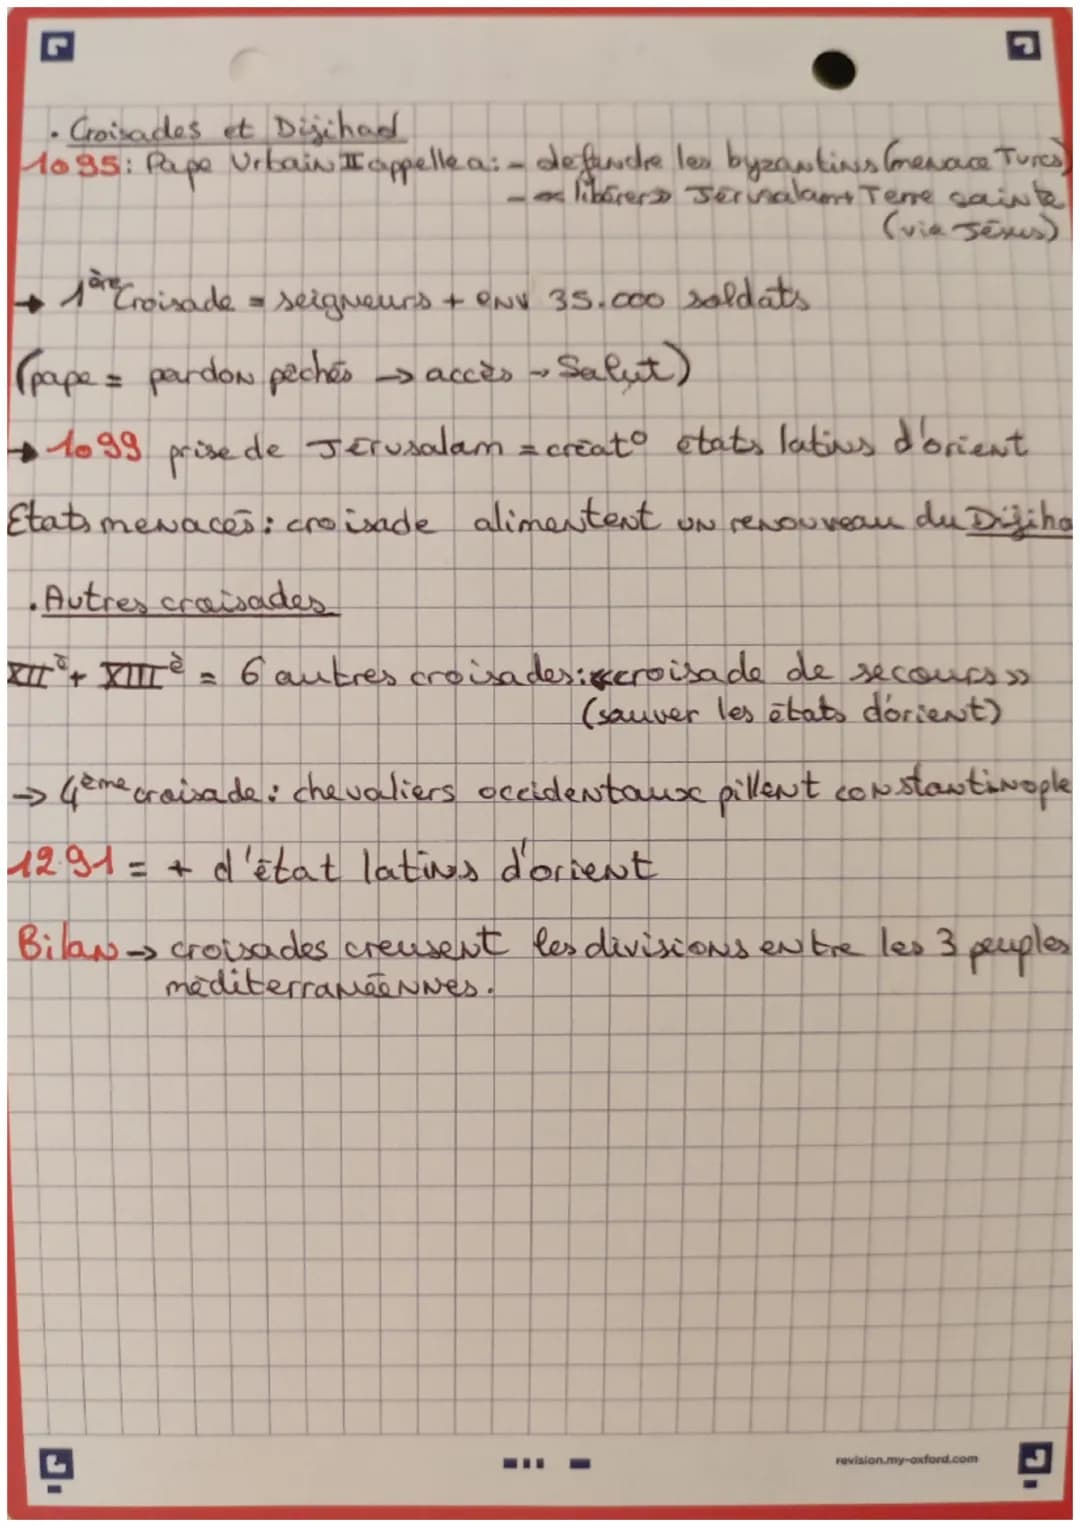 . Croisades et Djihad
1095: Pape Urbain II appelle a: - défendre les byzantins (menace Turcs)
- « libérer» Jérusalam+ Terre sainte
(via Jésus)
→ 1ère Croisade = seigneurs + env 35.000 soldats
(pape = pardon péchés → accès → Salut)
→ 1099 prise de Jérusalam = créat° états latins d'orient
Etats menacés: croisade alimentent un renouveau du Djiha
. Autres croisades
XIIè + XIIIè = 6 autres croisades: «croisade de secours»
(sauver les états d'orient)
→ 4ème croisade: chevaliers occidentaux pillent constantinople
1291 = + d'état latins d'orient
Bilan → croisades creusent les divisions entre les 3 peuples
méditerranéennes.
revision.my-oxford.com